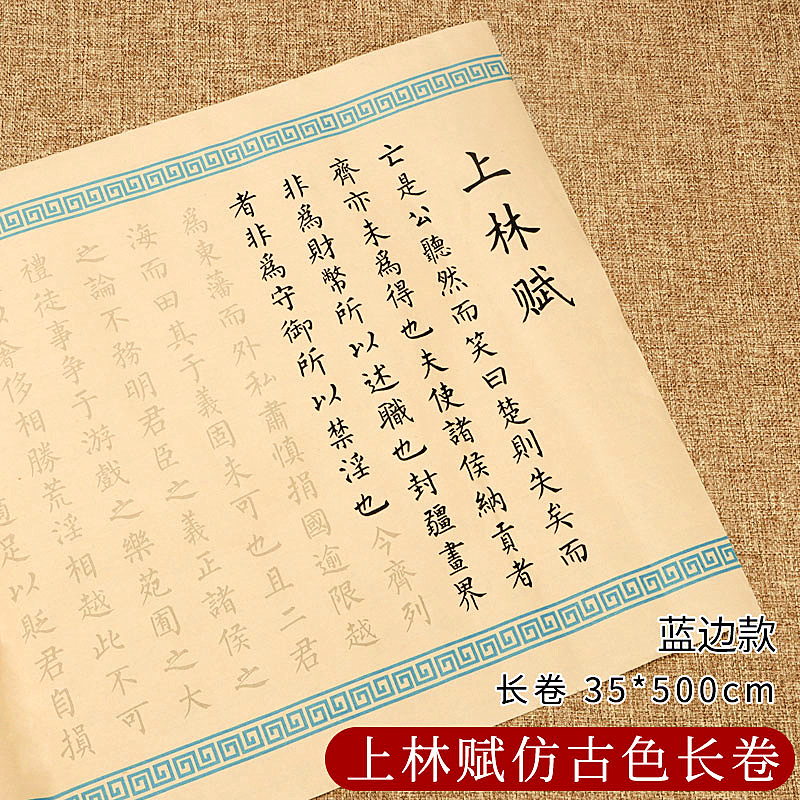 上林赋
亡是公聽然而笑曰楚則失矣而
齊亦未爲得也夫使諸侯納貢者
非爲財幣所以述職也封疆畫界
者非爲守御所以禁淫也今齊列
爲東藩而外私肅慎捐國逾限越
海而田其于義固未可也且二君
之論不務明君臣之義正諸侯之
禮徒事争于游戲之樂苑囿之大
奢侈相勝荒淫相越此不可
足以貶君自損
蓝边款
长卷 35*500cm
上林赋仿古色长卷